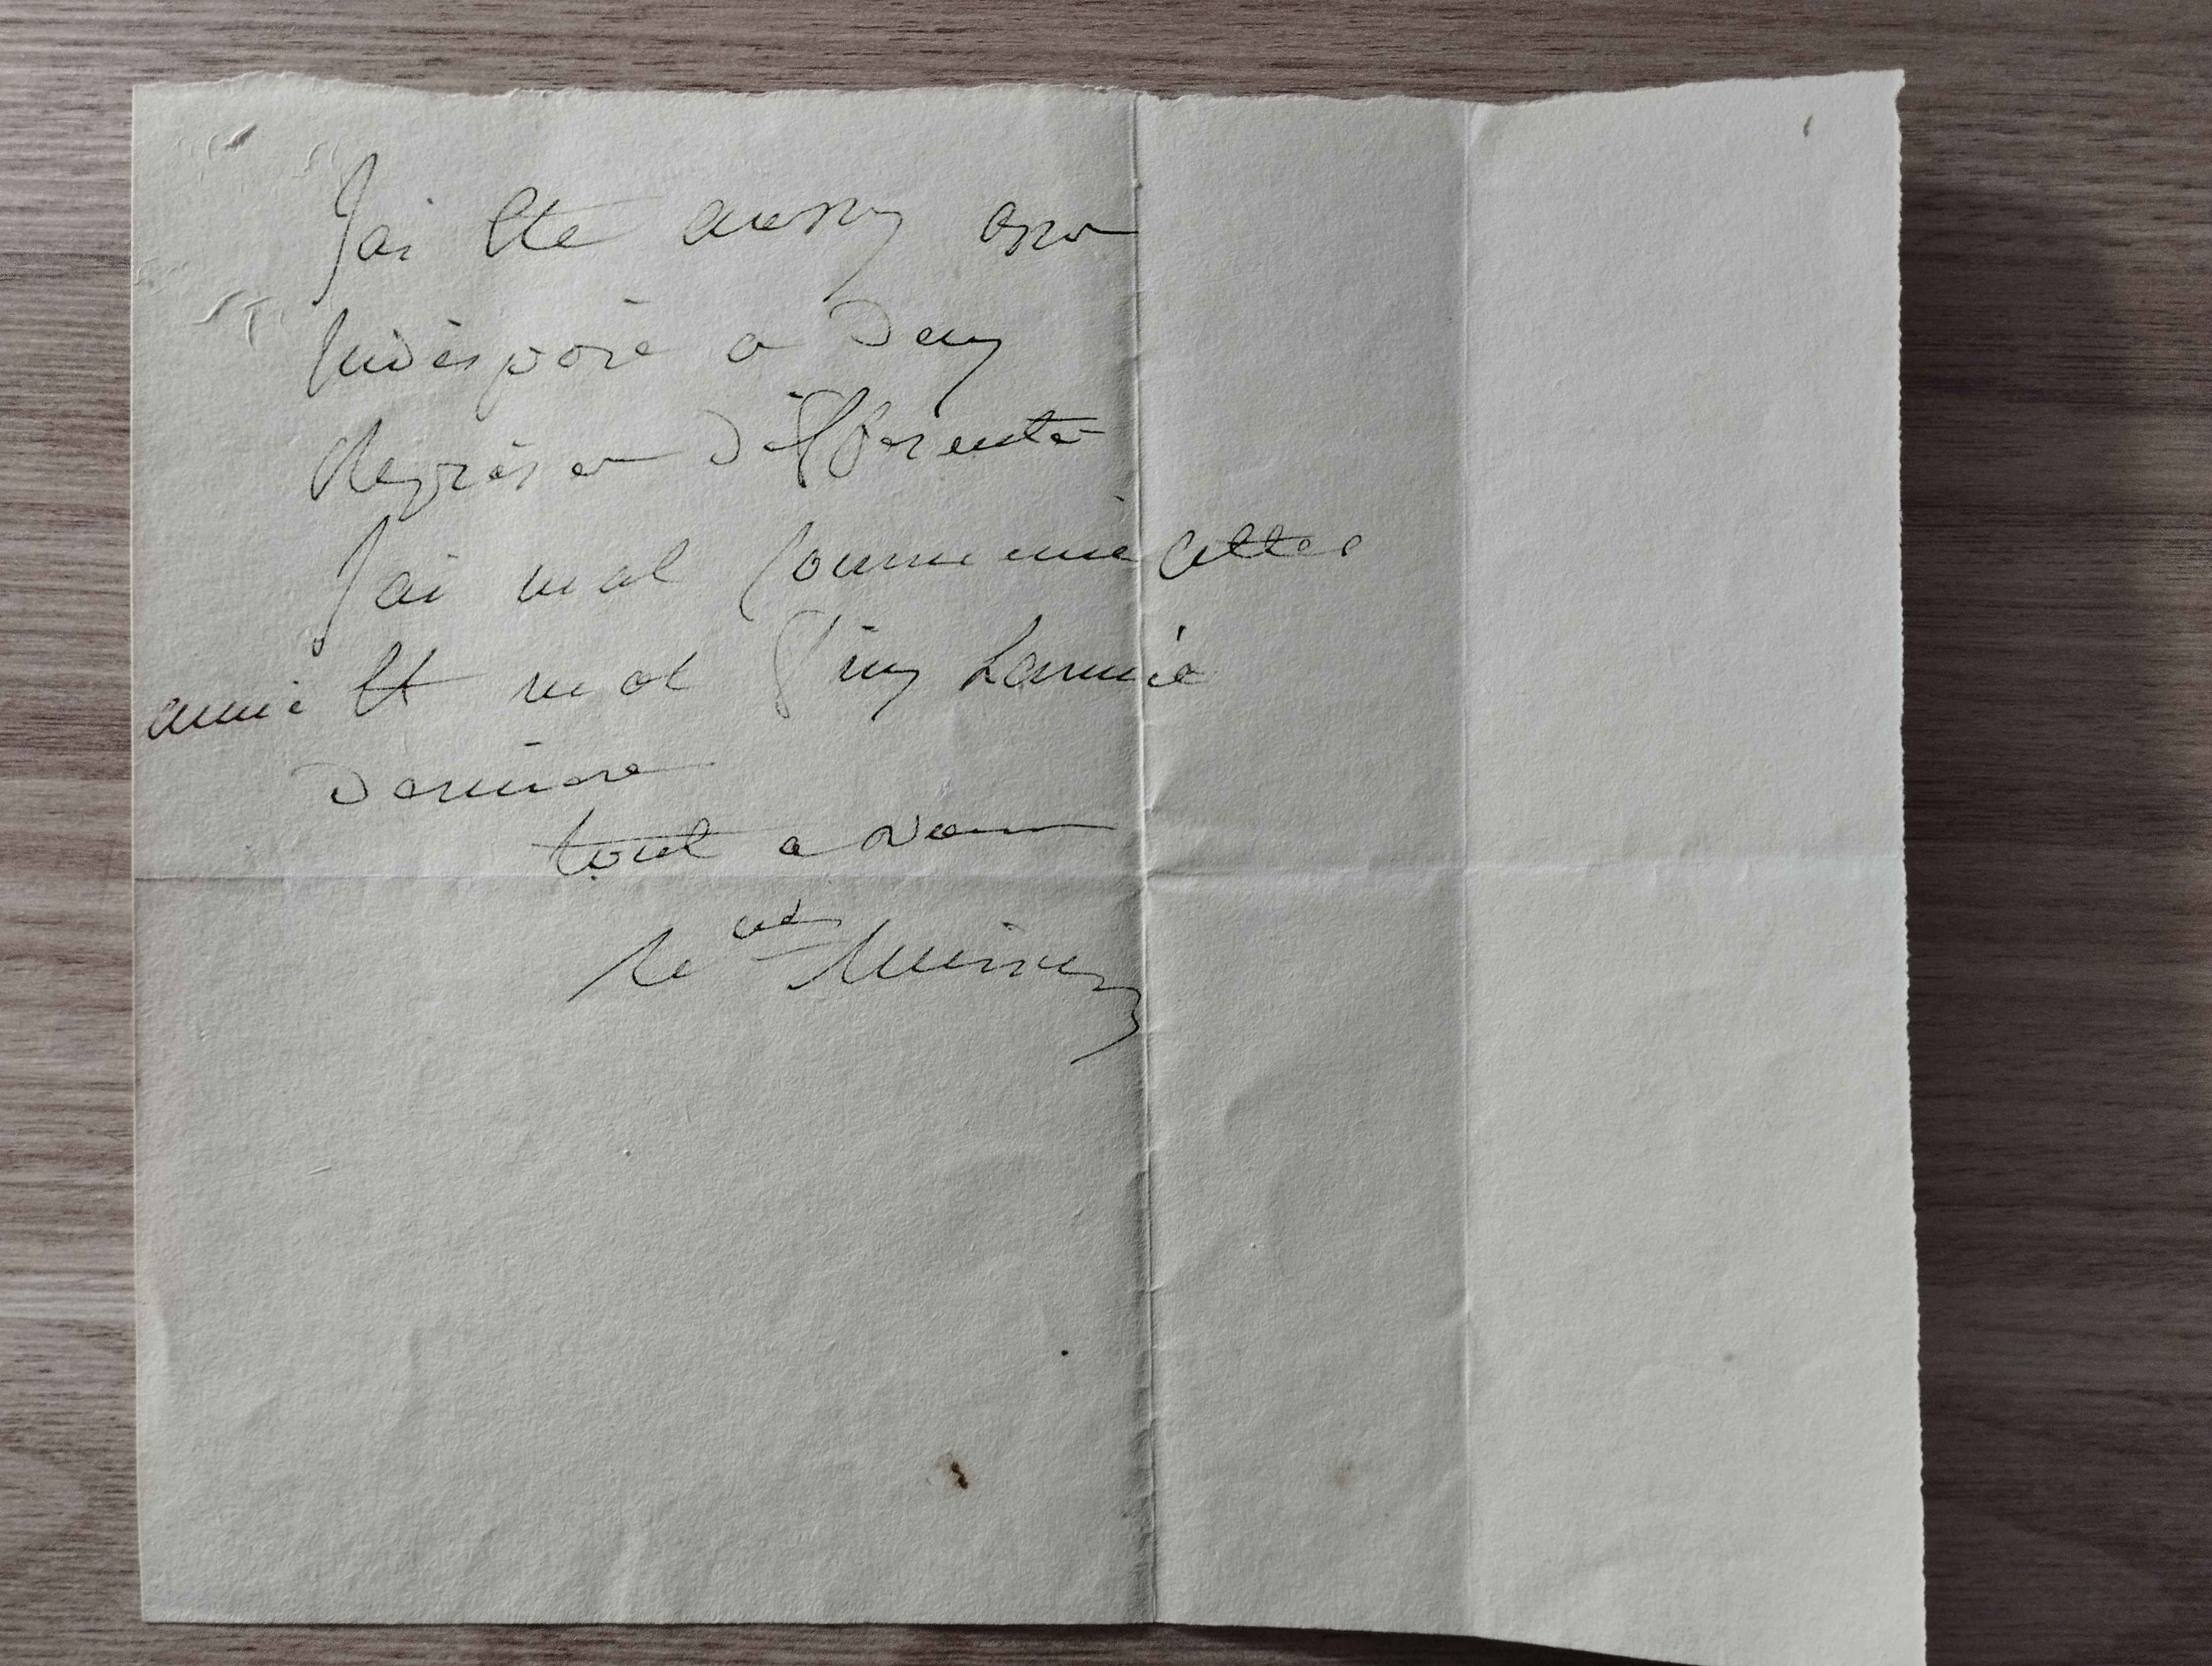 J'ai été aussy assez
Indisposé a deux
Reprises différente
J'ai mal Commencé cettes
année Et mal finy Lannée
Derniere
tout a vous
le